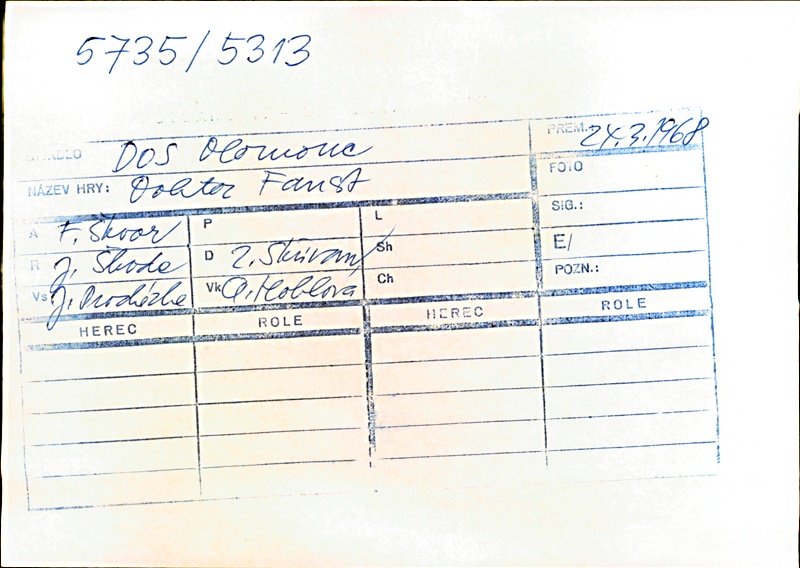 5735/5313
DIVADLO DOS Olomouc PREM.: 24.3.1968
NÁZEV HRY: Doktor Faust FOTO
A F. Škvor P L SIG.:
R J. Škoda D Z. Skřivan Sh E/
Vs J. Procházka Vk O. Hoblová Ch POZN.:
HEREC ROLE HEREC ROLE